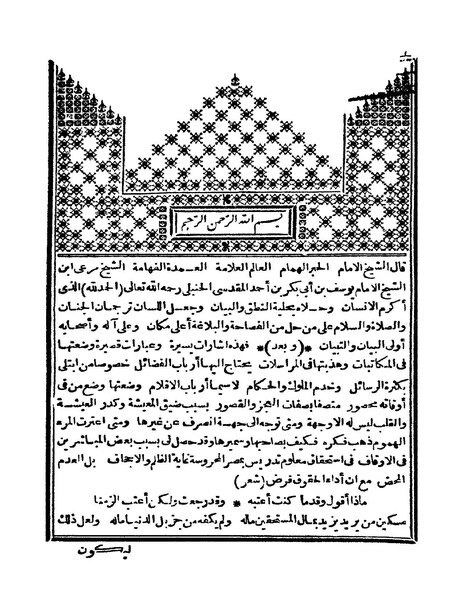 بسم الله الرحمن الرحيم
قال الشيخ الامام الحبر الهمام العالم العلامة العمدة الفهامة الشيخ مرعى ابن
الشيخ الامام يوسف بن أبى بكر بن أحمد المقدسى الحنبلى رحمه الله تعالى (الحمد لله) الذى
أكرم الانسان وحلاه بحلية النطق والبيان وجعل اللسان ترجمان الجنان
والصلاة والسلام على من حل من الفصاحة والبلاغة أعلى مكان وعلى آله وأصحابه
أولى البيان والتبيان * (وبعد) * فهذه اشارات يسيرة وعبارات قصيرة وضعتها
فى المكاتبات وهذبتها فى المراسلات يحتاج اليها أرباب الفضائل خصوصا من ابتلى
بكثرة الرسائل وخدم الملوك والحكام لاسيما أرباب الاقلام وضعتها وضع من فى
أوقاته محصور متصفا بصفات العجز والقصور بسبب ضيق المعيشة وكدر العيشة
والقلب ليس له الاوجهة ومتى توجه الى جهة انصرف عن غيرها ومتى اعترت المرء
الهموم ذهب فكره فكيف بصاحبها وسميرها وقد حصل لى بسبب بعض المباشرين
فى الاوقاف فى استحقاق معلوم تدريس بمصر المحروسة غاية الظلم والاجحاف بل العدم
المحض مع ان أداء الحقوق فرض (شعر)
ماذا أقول وقد ما كنت أعتبه * وقد رجعت ولكن أعتب الزمنا
مسكين من يريد يزيد بمال المستحقين ماله ولم يكفه من جزيل الدنيا ماله ولعل ذلك
ليكون